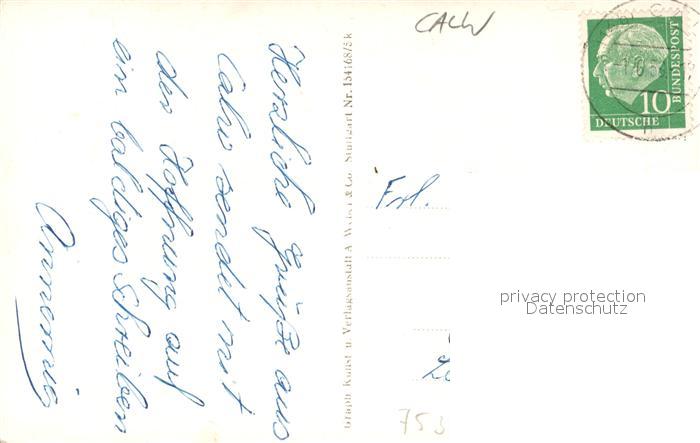 Herzliche Grüße aus
Calw sendet mit
der Hoffnung auf
ein baldiges Schreiben
Annemie
Graph. Kunst u. Verlagsanstalt A. Weber & Co. Stuttgart Nr. 154168/5 k
CALW
10
DEUTSCHE
BUNDESPOST
Frl.
privacy protection
Datenschutz
753